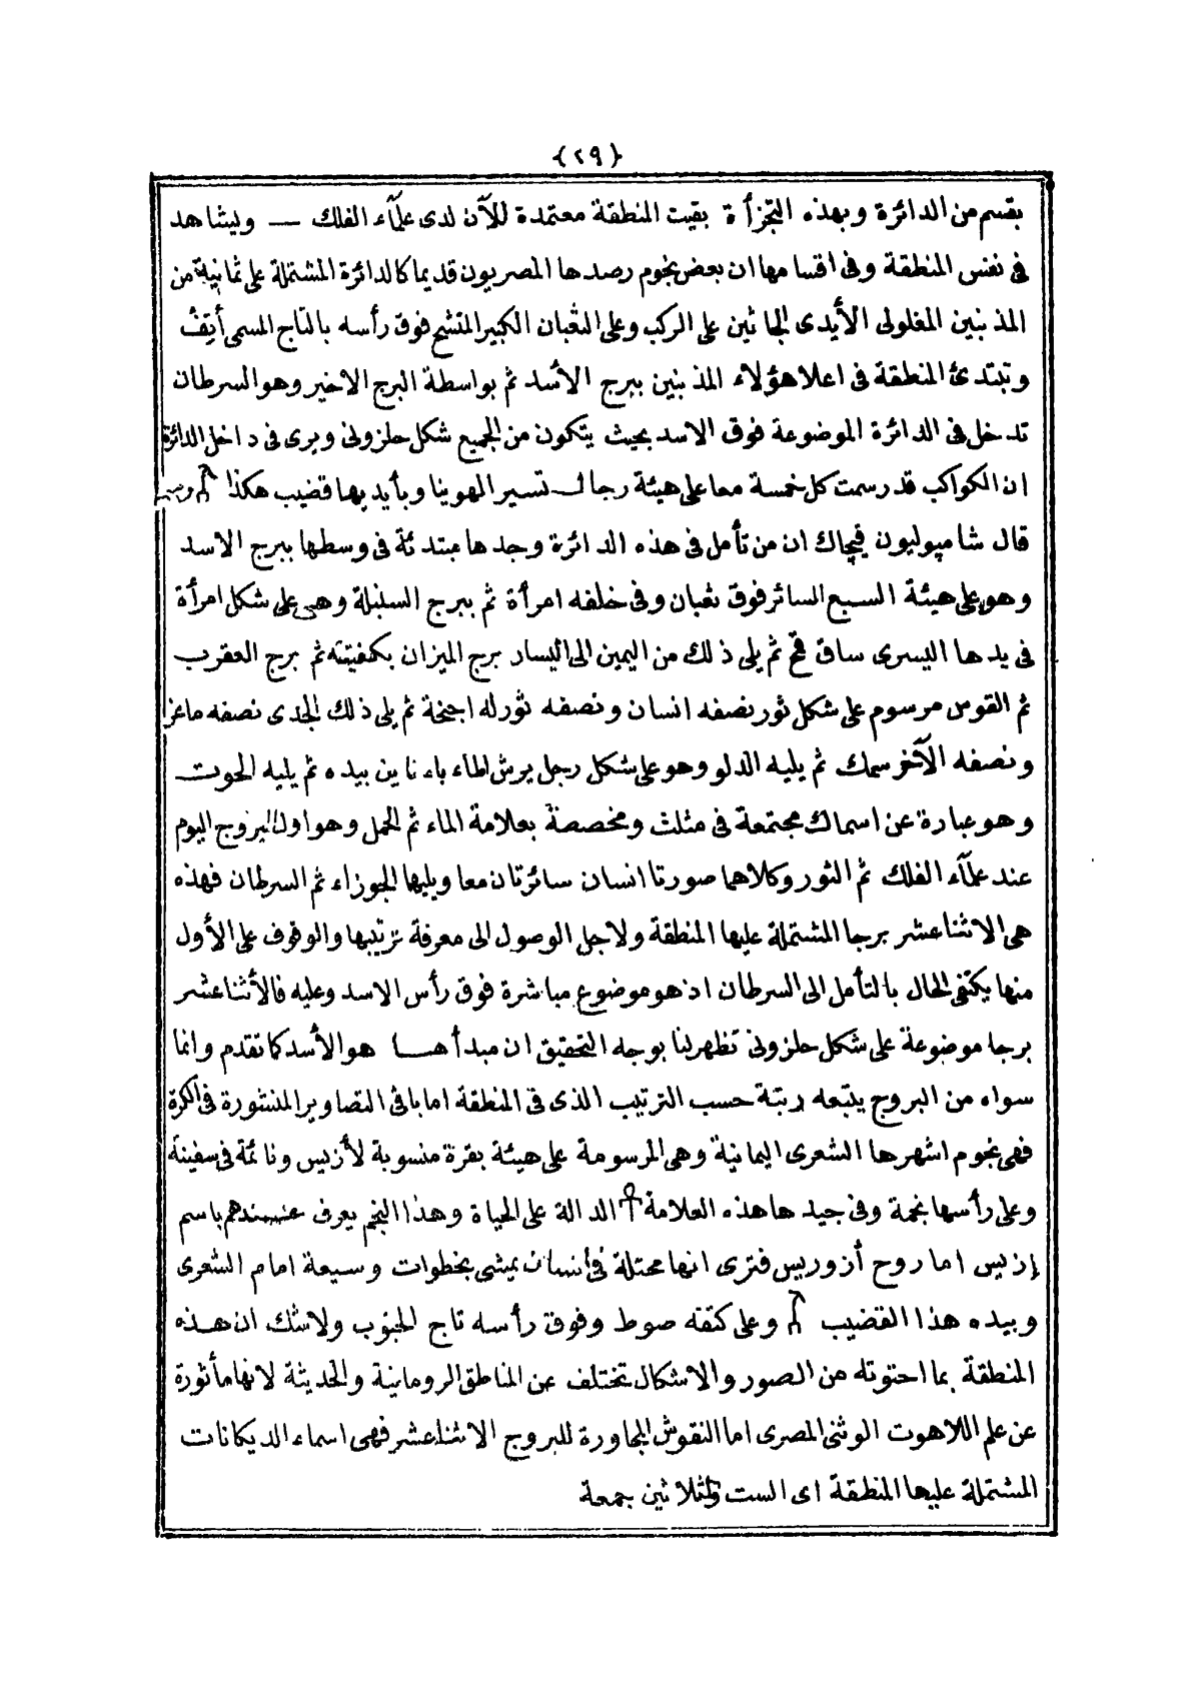 {٢٩}
بقسم من الدائرة وبهذه التجزأة بقيت المنطقة معتمدة للآن لدى علمآء الفلك — ويشاهد
فى نفس المنطقة وفى اقسامها ان بعض نجوم رصدها المصريون قديما كالدائرة المشتملة على ثمانية من
المذنبين المغلولى الأيدى الجاثين على الركب وعلى الثعبان الكبير المتشح فوق رأسه بالتاج المسمى أتف
وتبتدئ المنطقة فى اعلا هؤلاء المذنبين ببرج الأسد ثم بواسطة البرج الاخير وهو السرطان
تدخل فى الدائرة الموضوعة فوق الاسد بحيث يتكون من الجميع شكل حلزونى ويرى فى داخل الدائرة
ان الكواكب قد رسمت كل خمسة معا على هيئة رجال تسير الهوينا وبأيديها قضيب هكذا
قال شامپوليون فيجاك ان من تأمل فى هذه الدائرة وجدها مبتدئة فى وسطها ببرج الاسد
وهو على هيئة السبع السائر فوق ثعبان وفى خلفه امرأة ثم ببرج السنبلة وهى على شكل امرأة
فى يدها اليسرى ساق قمح ثم يلى ذلك من اليمين الى اليسار برج الميزان بكفتيته ثم برج العقرب
ثم القوس مرسوم على شكل ثور نصفه انسان ونصفه ثور له اجنحة ثم يلى ذلك الجدى نصفه ماعز
ونصفه الآخر سمك ثم يليه الدلو وهو على شكل رجل يرش الماء باناين بيده ثم يليه الحوت
وهو عبارة عن اسماك مجتمعة فى مثلث ومخصصة بعلامة الماء ثم الحمل وهو اول البروج اليوم
عند علمآء الفلك ثم الثور وكلاهما صورتا انسان سائرتان معا ويليها الجوزاء ثم السرطان فهذه
هى الاثناعشر برجا المشتملة عليها المنطقة ولاجل الوصول الى معرفة ترتيبها والوقوف على الأول
منها يكتفى الحال بالتأمل الى السرطان اذ هو موضوع مباشرة فوق رأس الاسد وعليه فالأثناعشر
برجا موضوعة على شكل حلزونى تظهر لنا بوجه التحقيق ان مبدأها هو الأسد كما تقدم وانما
سواه من البروج يتبعه رتبة حسب الترتيب الذى فى المنطقة اما باقى التصاوير المنثورة فى الكرة
فهى نجوم اشهرها الشعرى اليمانية وهى المرسومة على هيئة بقرة منسوبة لأزيس ونائمة فى سفينة
وعلى رأسها نجمة وفى جيدها هذه العلامة ☥ الدالة على الحياة وهذا النجم يعرف عندهم باسم
إزيس اما روح أزوريس فترى انها محتلة فى انسان يمشى بخطوات وسيعة امام الشعرى
وبيده هذا القضيب وعلى كتفه صوط وفوق رأسه تاج الجنوب ولاشك ان هذه
المنطقة بما احتوته من الصور والاشكال تختلف عن المناطق الرومانية والحديثة لانها مأثورة
عن علم اللاهوت الوثنى المصرى اما النقوش المجاورة للبروج الاثناعشر فهى اسماء الديكانات
المشتملة عليها المنطقة اى الست وثلاثين جمعة